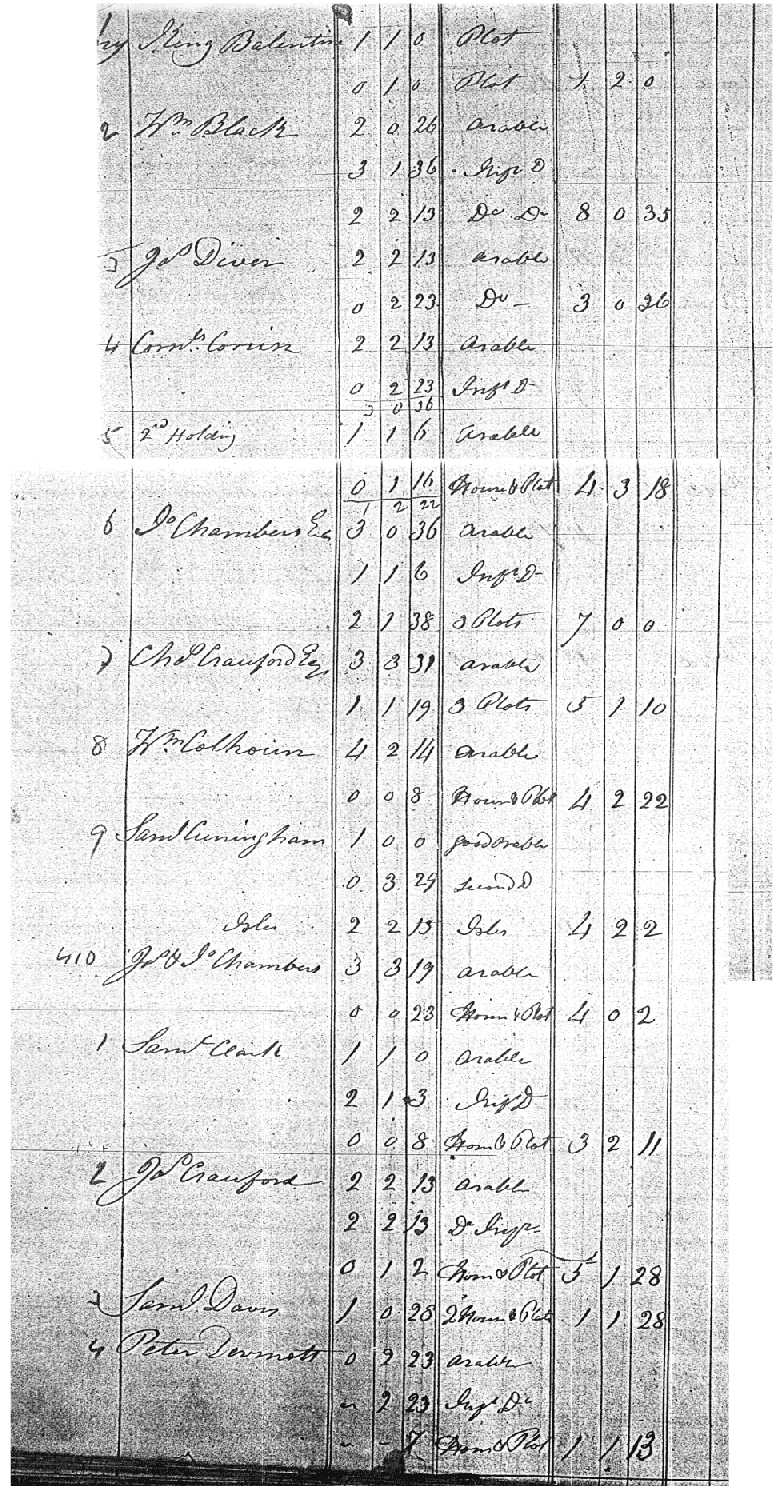 King Balentine 1 1 0 Plot
0 1 0 Plot 1 2 0
2 Wm Black 2 0 26 arable
3 1 36 Infr D
2 2 13 Do Do 8 0 35
3 Jas Diver 2 2 13 arable
0 2 23 Do 3 0 36
4 Corns 2 2 13 arable
0 2 23 Infr D
3 0 36
5 2d Holding 1 1 6 arable
0 1 16 House & Plot 4 3 18
1 2 22
6 Jo Chambers Esq 3 0 36 arable
1 1 6 Infr D
2 1 38 3 Plots 7 0 0
7 Chas Crawford Esq 3 3 31 arable
1 1 19 3 Plots 5 1 10
8 Wm Colhoun 4 2 14 arable
0 0 8 House & Plot 4 2 22
9 Saml Cuningham 1 0 0 good arable
0 3 29 second D
Isles 2 2 13 Isles 4 2 2
410 Jas & Jo Chambers 3 3 19 arable
0 0 23 House & Plot 4 0 2
1 Saml Clark 1 1 0 arable
2 1 3 Infr D
0 0 8 House & Plot 3 2 11
2 Jas Crawford 2 2 13 arable
2 2 13 Do Infr
0 1 2 House & Plot 5 1 28
3 Saml Davis 1 0 28 2 House & Plots 1 1 28
4 Peter Dermott 0 2 23 arable
2 23 Infr Do
7 House & Plot 1 1 13